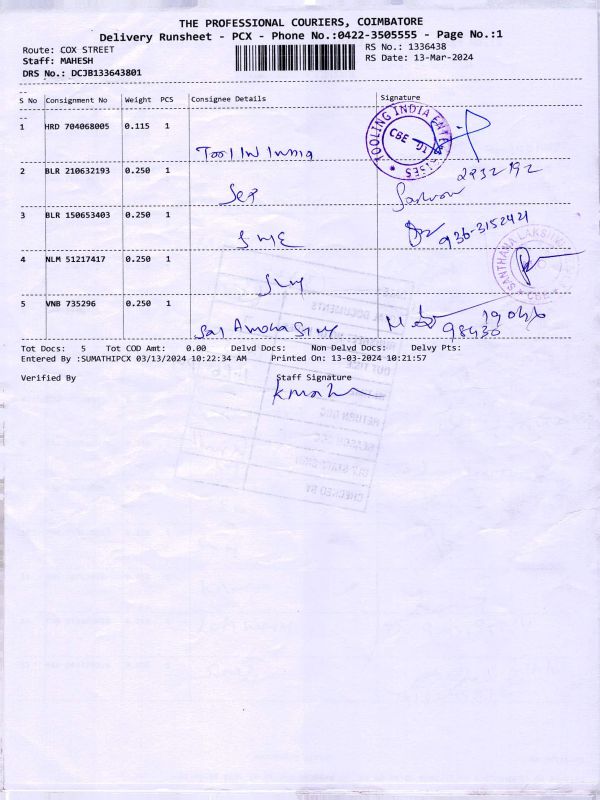 THE PROFESSIONAL COURIERS, COIMBATORE
Delivery Runsheet - PCX - Phone No.:0422-3505555 - Page No.:1
Route: COX STREET
RS No.: 1336438
Staff: MAHESH
RS Date: 13-Mar-2024
DRS No.: DCJB133643801
S No Consignment No Weight PCS Consignee Details Signature
1 HRD 704068005 0.115 1
TOOLING INDIA ENTERPRISES
CBE - 01
Tool IN India
2 BLR 210632193 0.250 1
3 BLR 150653403 0.250 1
SME
936-3152421
4 NLM 51217417 0.250 1
SANTHANA LAKSHMI
CBE
5 VNB 735296 0.250 1
98430
Tot Docs: 5 Tot COD Amt: 0.00 Delvd Docs: Non Delvd Docs: Delvy Pts:
Entered By :SUMATHIPCX 03/13/2024 10:22:34 AM Printed On: 13-03-2024 10:21:57
Verified By Staff Signature
RETURN DOC
CHECKED BY